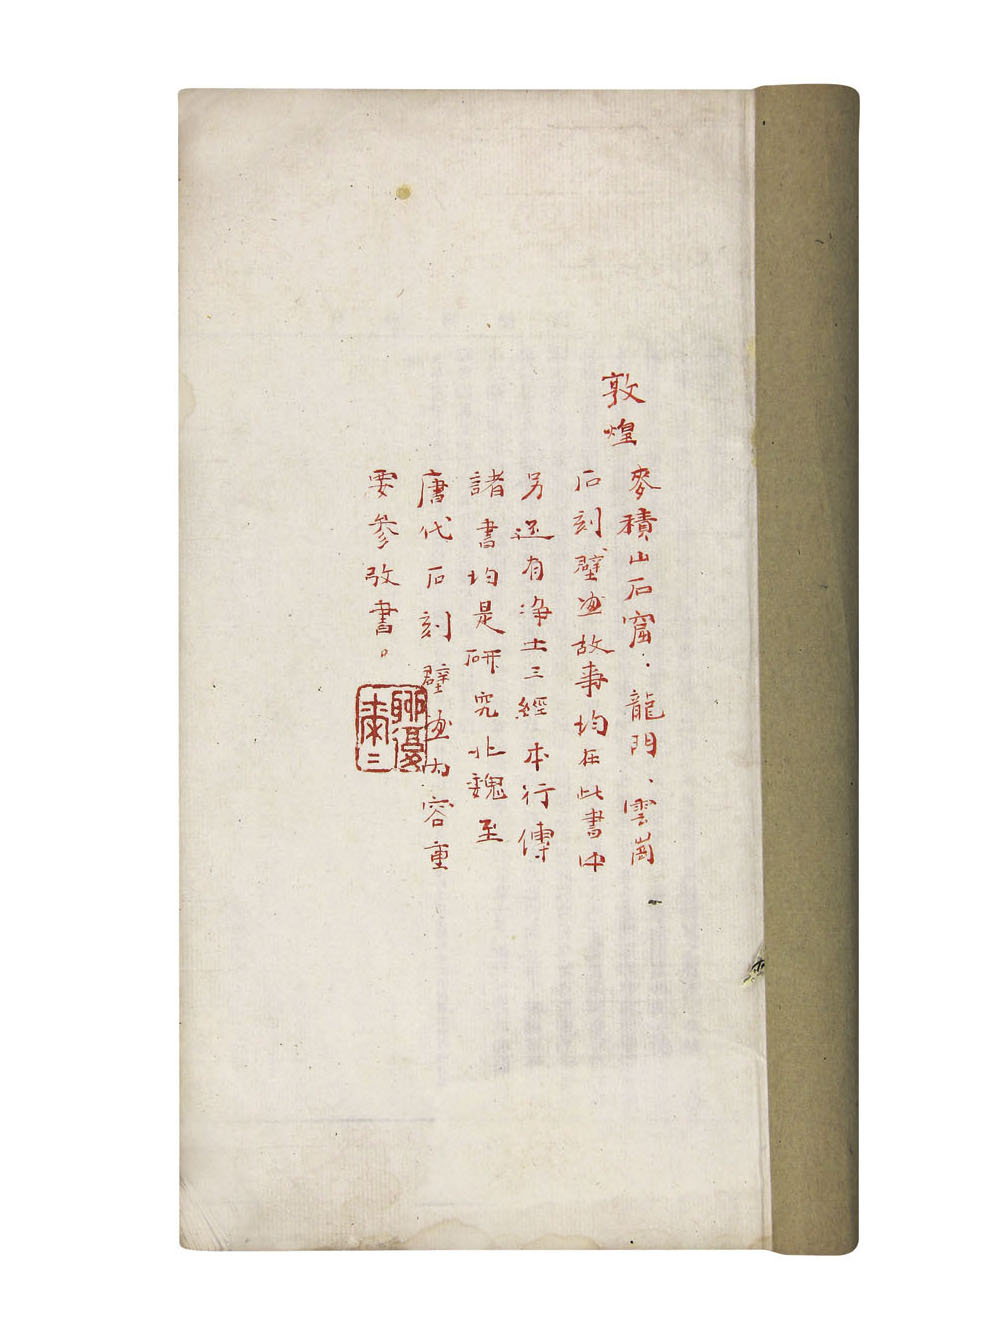 敦煌麥積山石窟、龍門、雲崗
石刻壁画故事均在此書中
另還有净土三經本行傳
諸書均是研究北魏至
唐代石刻壁画内容重
要參攷書。